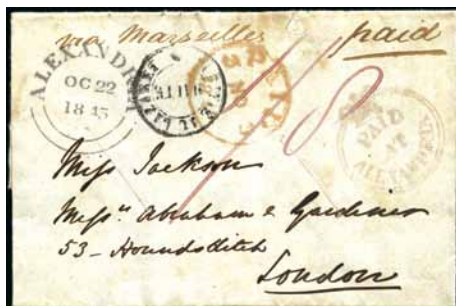 via Marseilles paid
ALEXANDRIA
OC 22
1845
PAID
1/8
PAID
AT
ALEXANDRIA
Miss Jackson
Mess.rs Abraham & Gardiner
53 - Houndsditch
London